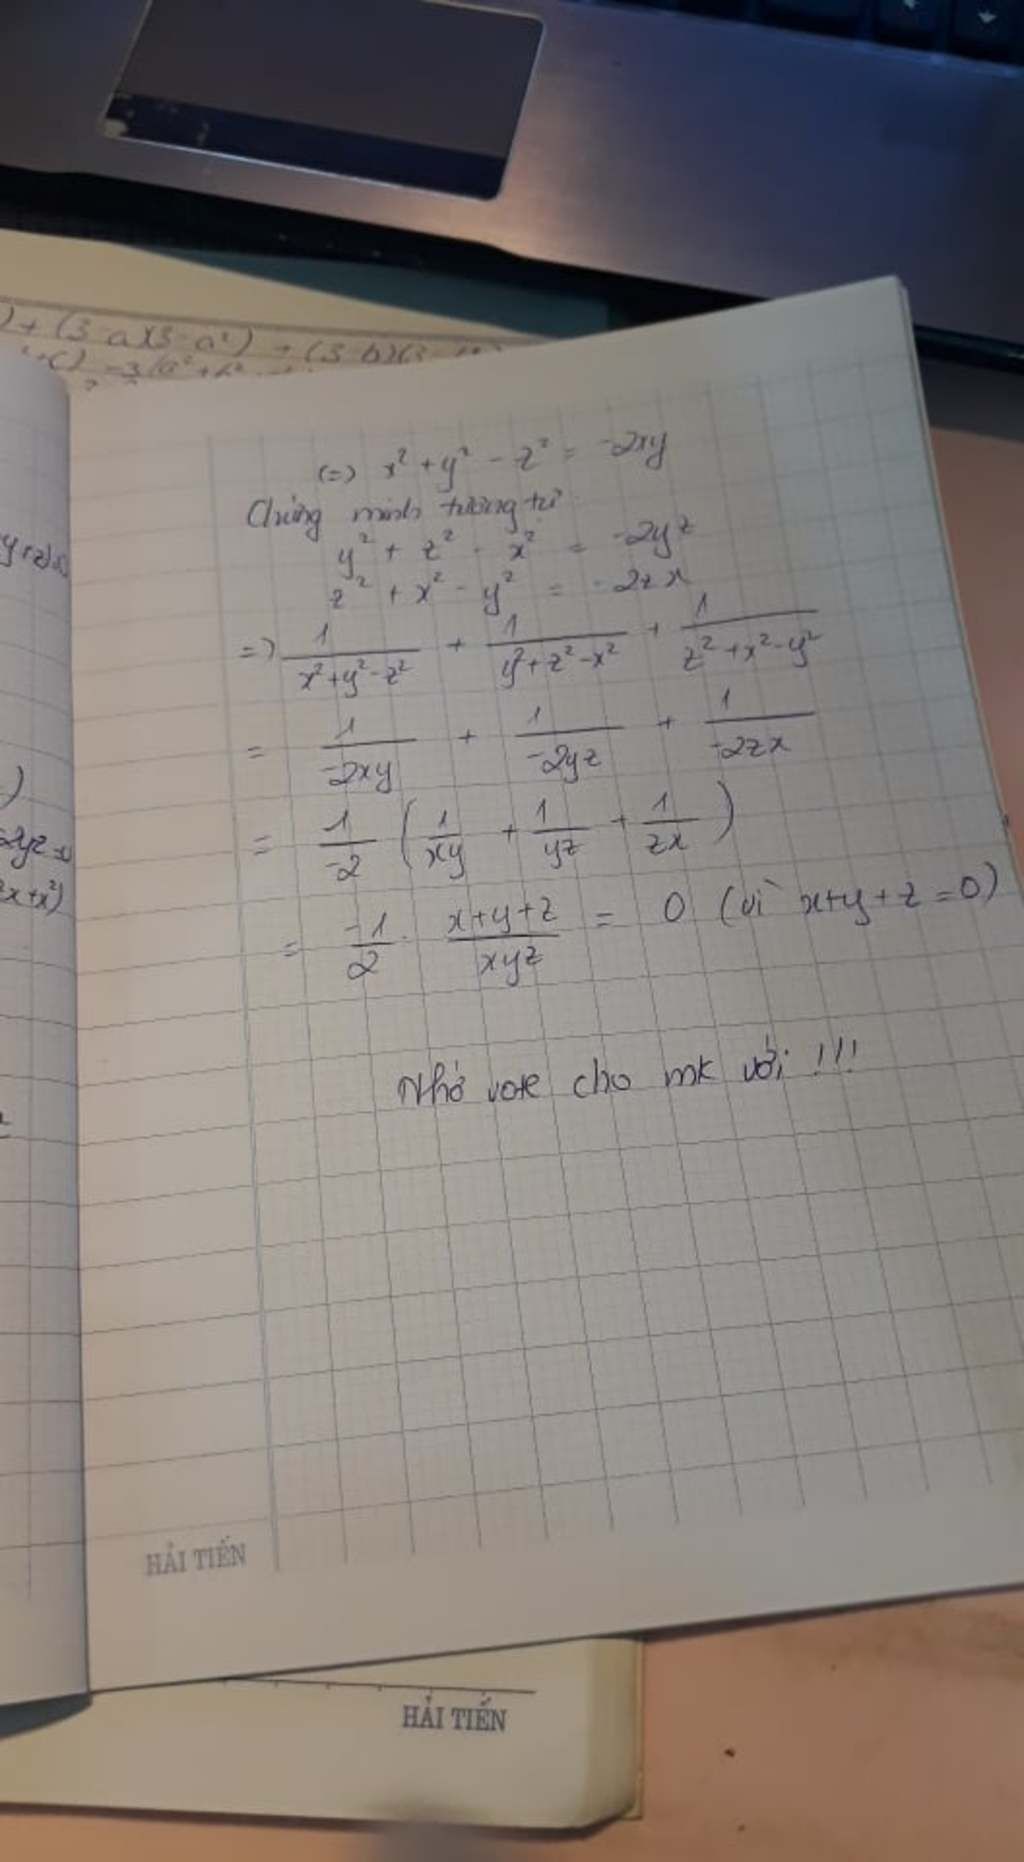 ) + (3-a)(3-a²) + (3-b)(3
(=) x² + y² - z² = -2xy
Chứng minh tương tự
y² + z² - x² = -2yz
z² + x² - y² = -2zx
=) 1/(x²+y²-z²) + 1/(y²+z²-x²) + 1/(z²+x²-y²)
= 1/(-2xy) + 1/(-2yz) + 1/(-2zx)
= 1/(-2) (1/xy + 1/yz + 1/zx)
= -1/2 . (x+y+z)/(xyz) = 0 (vì x+y+z=0)
Nhớ vote cho mk với !!!
HẢI TIẾN
HẢI TIẾN